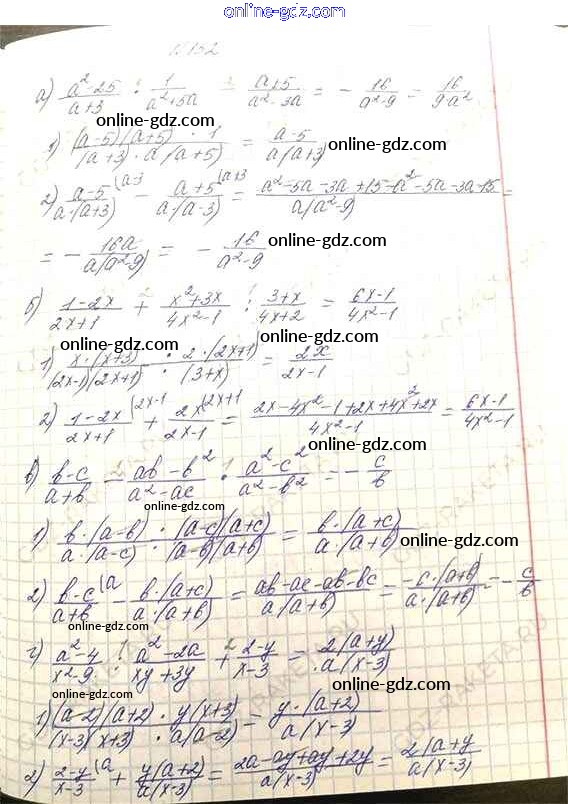 online-gdz.com
online-gdz.com
N 152
а) (a²-25)/(a+3) : 1/(a²+5a) - (a+5)/(a²-3a) = - 16/(a²-9) = 16/(9-a²)
online-gdz.com
1) ((a-5)(a+5)·1)/((a+3)·a(a+5)) = (a-5)/(a(a+3)) online-gdz.com
2) (a-5)/(a·(a+3)) (a-3 - (a+5)/(a·(a-3)) (a+3 = (a²-5a-3a+15-a²-5a-3a-15)/(a(a²-9)) =
online-gdz.com
= - 16a/(a(a²-9)) = - 16/(a²-9) online-gdz.com
б) (1-2x)/(2x+1) + (x²+3x)/(4x²-1) : (3+x)/(4x+2) = (6x-1)/(4x²-1)
online-gdz.com
1) (x·(x+3))/((2x-1)(2x+1)) · (2·(2x+1))/((3+x)) = 2x/(2x-1)
online-gdz.com
2) (1-2x)/(2x+1) (2x-1 + 2x/(2x-1) (2x+1 = (2x-4x²-1+2x+4x²+2x)/(4x²-1) = (6x-1)/(4x²-1)
online-gdz.com
в) (b-c)/(a+b) - (ab-b²)/(a²-ac) · (a²-c²)/(a²-b²) = - c/b
online-gdz.com
1) (b·(a-b))/(a·(a-c)) · ((a-c)(a+c))/((a-b)(a+b)) = (b·(a+c))/(a(a+b))
online-gdz.com
2) (b-c)/(a+b) (a - (b·(a+c))/(a·(a+b)) = (ab-ac-ab-bc)/(a(a+b)) = (-c·(a+b))/(a·(a+b)) = - c/b
online-gdz.com
г) (a²-4)/(x²-9) : (a²-2a)/(xy+3y) + (2-y)/(x-3) = (2(a+y))/(a(x-3))
online-gdz.com
online-gdz.com
1) ((a-2)(a+2)·y(x+3))/((x-3)(x+3)·a(a-2)) = (y·(a+2))/(a(x-3))
online-gdz.com
2) (2-y)/(x-3) (a + (y(a+2))/(a(x-3)) = (2a-ay+ay+2y)/(a(x-3)) = (2(a+y)/(a(x-3))
online-gdz.com
online-gdz.com